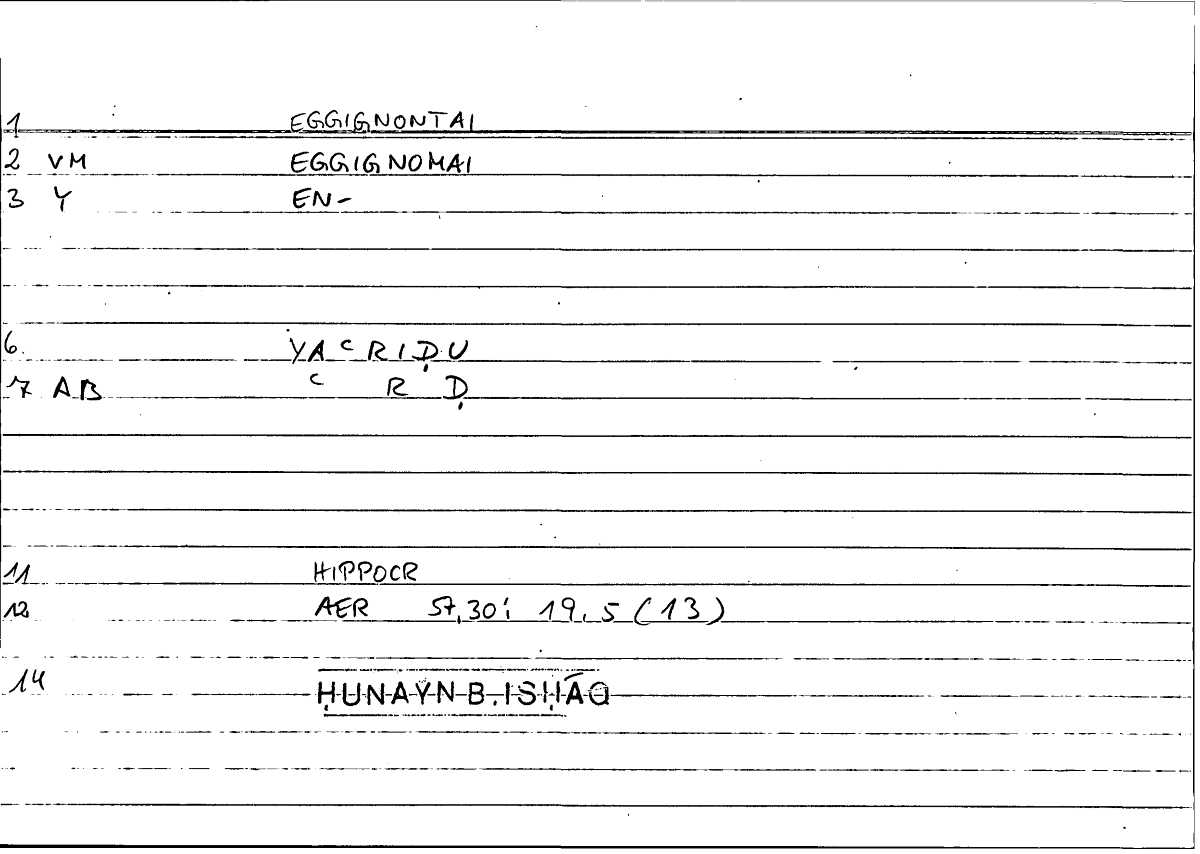 1 EGGIGNONTAI
2 VM EGGIGNOMAI
3 Y EN-
6. YAᶜRIḌU
7 AB ᶜ R Ḍ
11 HIPPOCR
12 AER 57,30; 19,5 (13)
14 ḤUNAYN B. ISḤĀQ